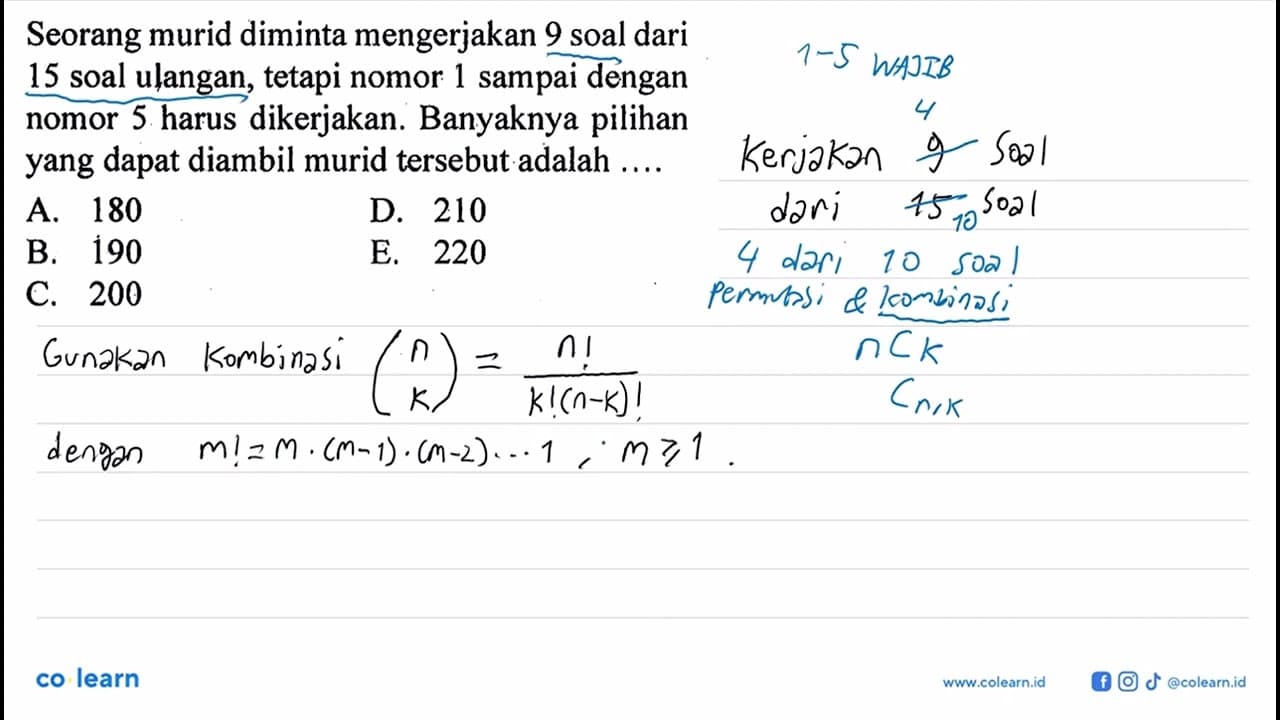 Seorang murid diminta mengerjakan 9 soal dari
15 soal ulangan, tetapi nomor 1 sampai dengan
nomor 5 harus dikerjakan. Banyaknya pilihan
yang dapat diambil murid tersebut adalah ....
A. 180 D. 210
B. 190 E. 220
C. 200
1-5 WAJIB
4
Kerjakan 9 Soal
dari 15 10 Soal
4 dari 10 soal
Permutasi & kombinasi
nCk
Cn,k
Gunakan Kombinasi (n k) = n! / k!(n-k)!
dengan m! = m . (m-1) . (m-2) ... 1 , m ≥ 1 .
co learn
www.colearn.id @colearn.id